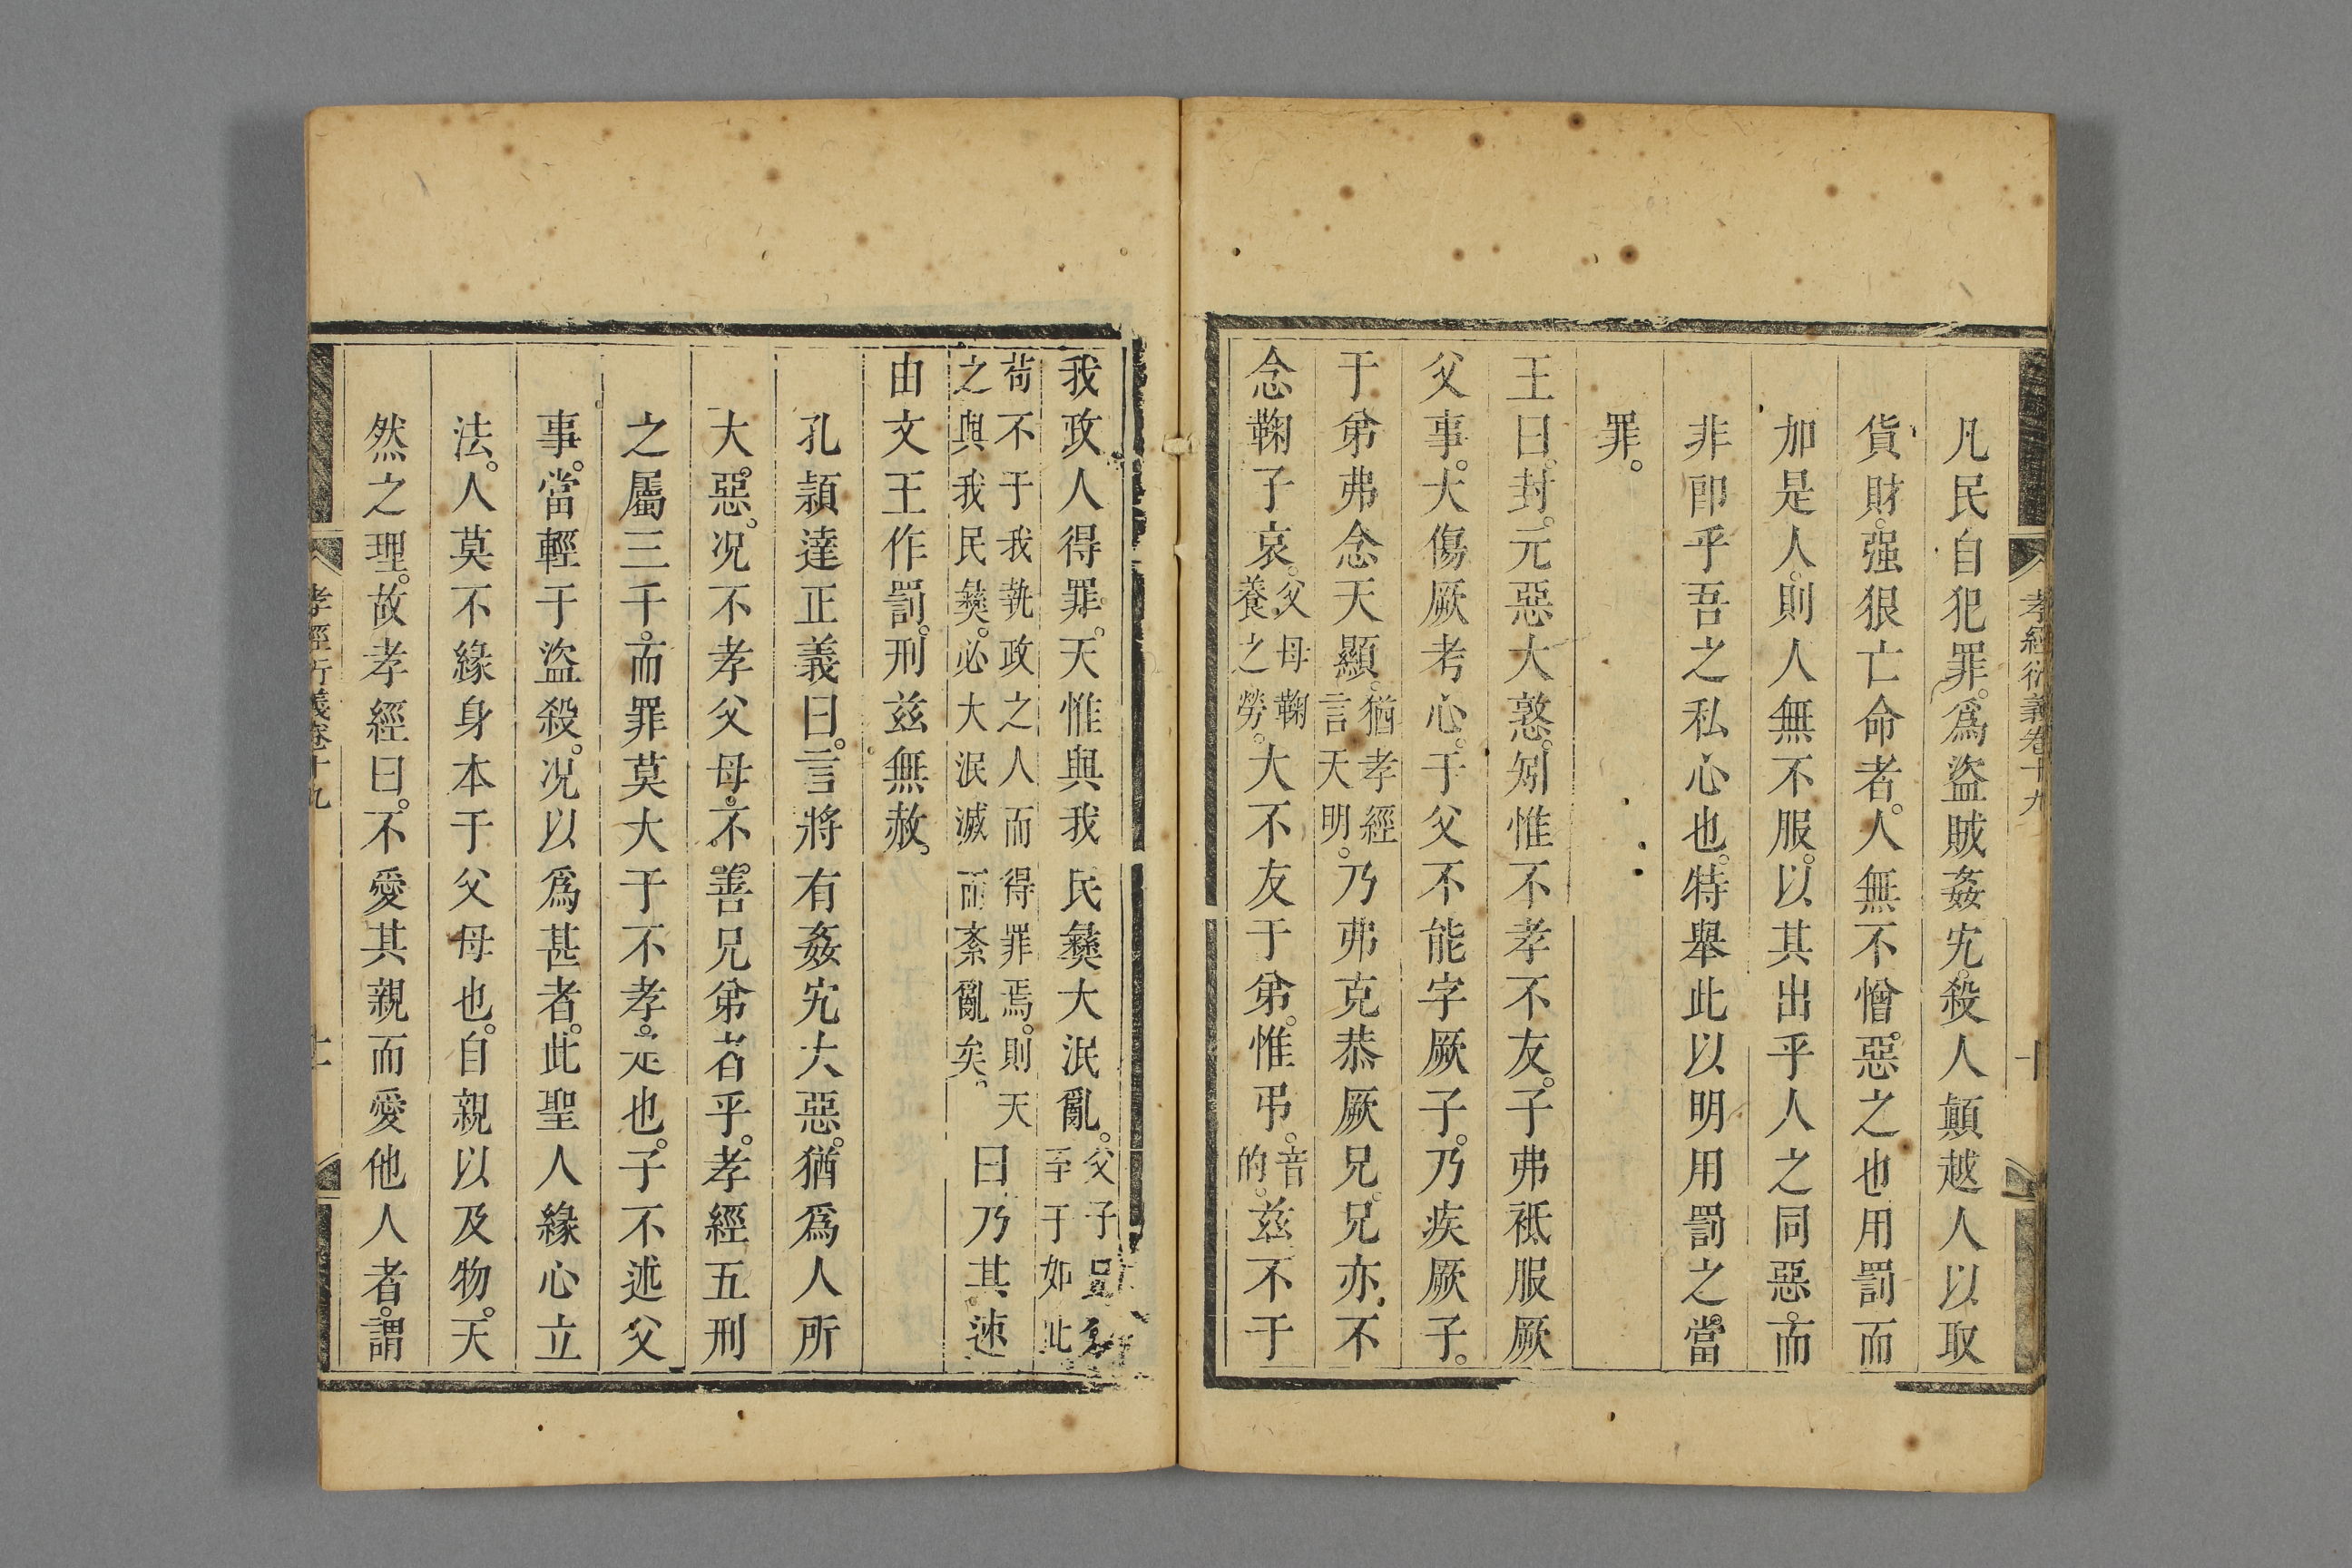 孝經衍義卷十九
十
凡民自犯罪。爲盜賊姦宄。殺人顛越人以取
貨財。强狠亡命者。人無不憎惡之也用罰而
加是人。則人無不服。以其出乎人之同惡。而
非卽乎吾之私心也。特舉此以明用罰之。當
罪。
王曰。封。元惡大憝。矧惟不孝不友。子弗祗服厥
父事。大傷厥考心。于父不能字厥子。乃疾厥子。
于弟弗念天顯。猶孝經言天明。乃弗克恭厥兄。兄亦不
念鞠子哀。父母鞠養之勞。大不友于弟。惟弔。音的。兹不于
我政人得罪。天惟與我民彝大泯亂。父子兄弟至于如此
苟不于我執政之人而得罪焉。則天之與我民彝。必大泯滅而紊亂矣。曰乃其速
由文王作罰。刑兹無赦。
孔穎達正義曰。言將有姦宄大惡。猶爲人所
大惡。况不孝父母。不善兄弟者乎。孝經五刑
之屬三千。而罪莫大于不孝。是也。子不述父
事。當輕于盜殺。况以爲甚者。此聖人緣心立
法。人莫不緣身本于父母也。自親以及物。天
然之理。故孝經曰。不愛其親而愛他人者。謂
孝經衍義卷十九
十一